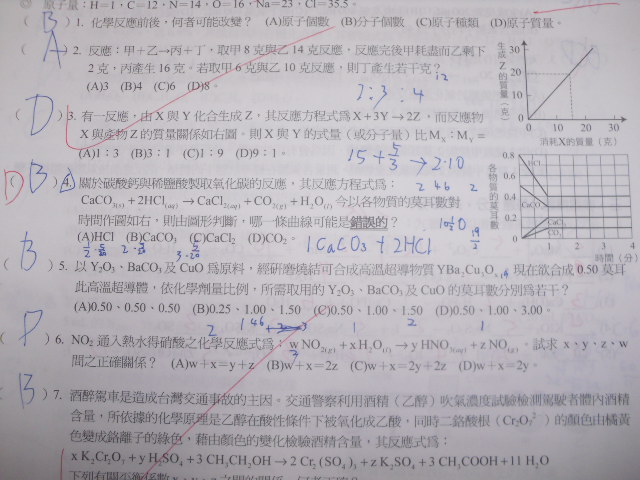 原子量：H=1，C=12，N=14，O=16，Na=23，Cl=35.5。
( B )1. 化學反應前後，何者可能改變？ (A)原子個數 (B)分子個數 (C)原子種類 (D)原子質量。
( A )2. 反應：甲＋乙→丙＋丁，取甲8克與乙14克反應，反應完後甲耗盡而乙剩下
2克，丙產生16克。若取甲6克與乙10克反應，則丁產生若干克？
(A)3 (B)4 (C)6 (D)8。
12
3:3:4
( D )3. 有一反應，由X與Y化合生成Z，其反應方程式為X＋3Y→2Z，而反應物
X與產物Z的質量關係如右圖。則X與Y的式量（或分子量）比MX：MY＝
(A)1：3 (B)3：1 (C)1：9 (D)9：1。
15+5/3→2·10
生成Z的質量（克）
30
20
10
0 10 20 30
消耗X的質量（克）
( B )4. 關於碳酸鈣與稀鹽酸製取氧化碳的反應，其反應方程式為：
CaCO3(s)＋2HCl(aq)→CaCl2(aq)＋CO2(g)＋H2O(l) 今以各物質的莫耳數對
時間作圖如右，則由圖形判斷，哪一條曲線可能是錯誤的？
(A)HCl (B)CaCO3 (C)CaCl2 (D)CO2。
1CaCO3+2HCl
2 46 2
各物質的莫耳數
0.8
0.6
0.4
0.2
0 1 2 3 4
HCl
CaCO3
CaCl2
CO2
時間（分）
( B )5. 以Y2O3、BaCO3及CuO為原料，經研磨燒結可合成高溫超導物質YBa2Cu3Ox，現在欲合成0.50莫耳
此高溫超導體，依化學劑量比例，所需取用的Y2O3、BaCO3及CuO的莫耳數分別為若干？
(A)0.50、0.50、0.50 (B)0.25、1.00、1.50 (C)0.50、1.00、1.50 (D)0.50、1.00、3.00。
2 146 1 2 1
6. NO2通入熱水得硝酸之化學反應式為：w NO2(g)＋x H2O(l)→y HNO3(aq)＋z NO(g)。試求x、y、z、w
間之正確關係？ (A)w＋x＝y＋z (B)w＋x＝2z (C)w＋x＝2y＋2z (D)w＋x＝2y。
3
( B )7. 酒醉駕車是造成台灣交通事故的主因。交通警察利用酒精（乙醇）吹氣濃度試驗檢測駕駛者體內酒精
含量，所依據的化學原理是乙醇在酸性條件下被氧化成乙酸，同時二鉻酸根（Cr2O7 2-）的顏色由橘黃
色變成鉻離子的綠色，藉由顏色的變化檢驗酒精含量，其反應式為：
x K2Cr2O7＋y H2SO4＋3 CH3CH2OH→2 Cr2(SO4)3＋z K2SO4＋3 CH3COOH＋11 H2O